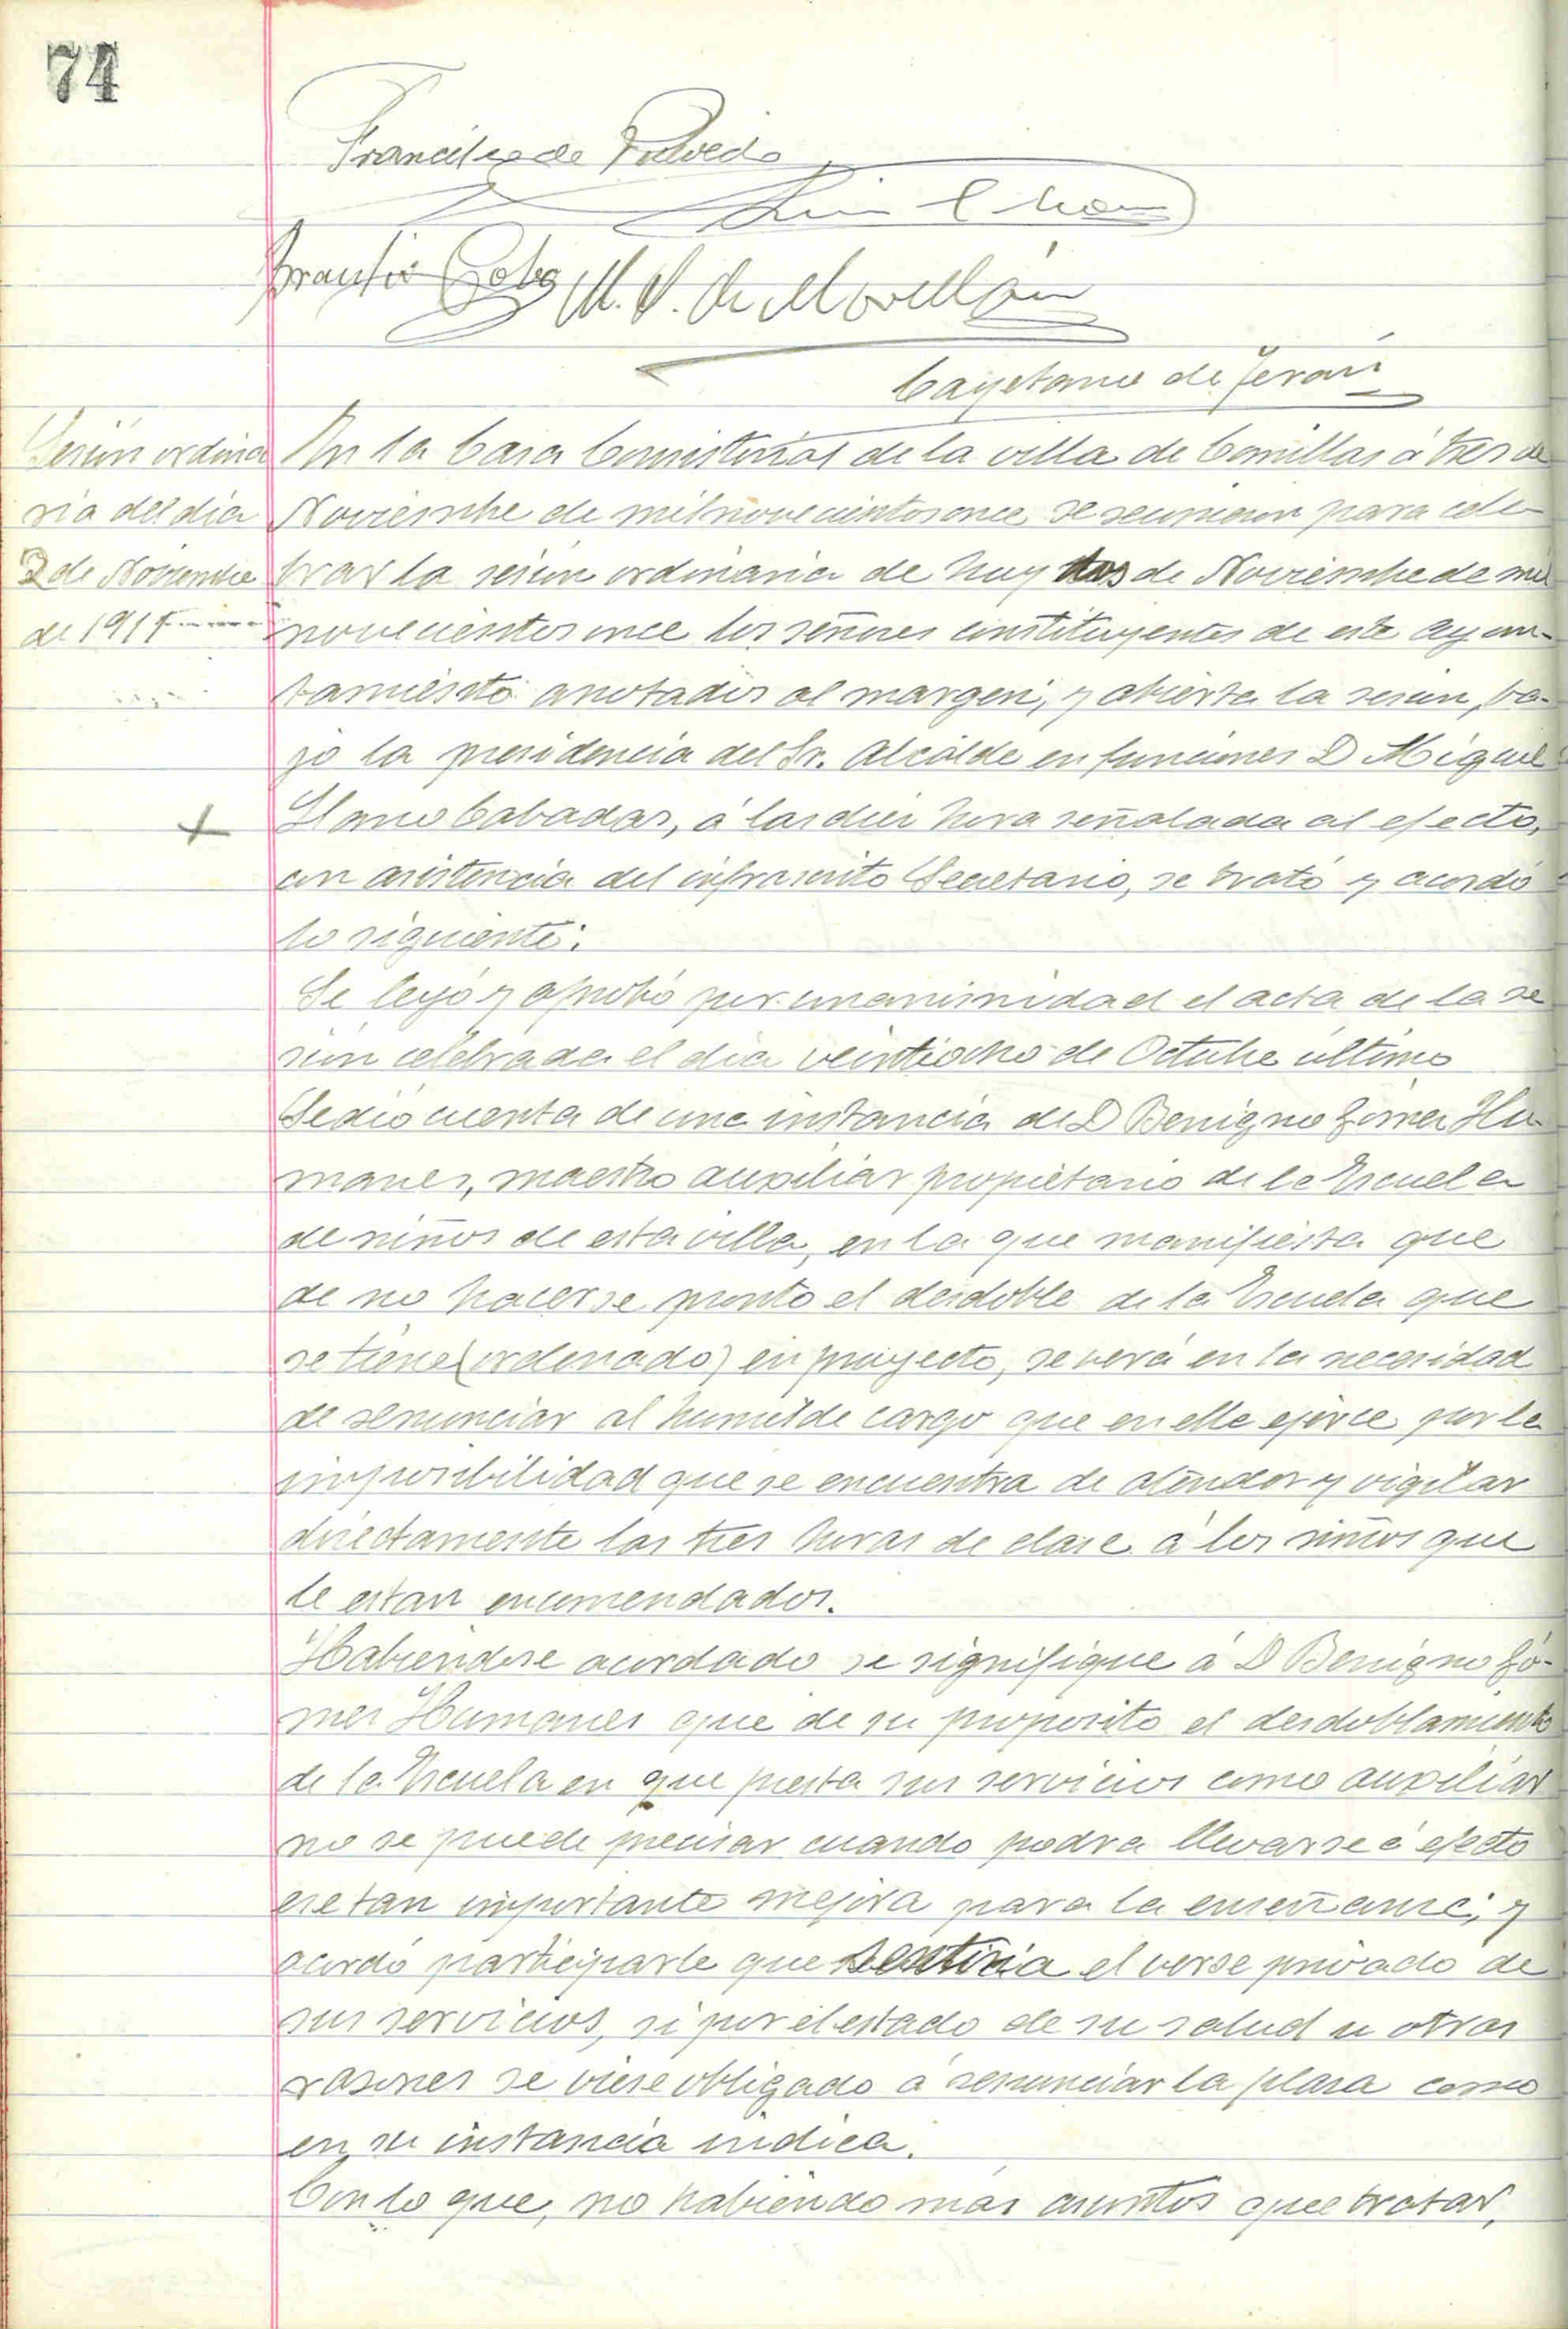 74
Francisco de
Cobo M. S. de Movellán
Cayetano de Terán
Sesión ordina
ria del día
2 de Noviembre
de 1911
En la Casa Consistorial de la villa de Comillas á tres de
Noviembre de mil novecientos once se reunieron para cele-
brar la sesion ordinaria de hoy dos de Noviembre de mil
novecientos once los señores constituyentes de este Ayun-
tamiento anotados al margen, y abierta la sesion, ba-
jo la presidencia del Sr. Alcalde en funciones D Miguel
Llano Cabadas, á las diez hora señalada al efecto,
con asistencia del infrascrito Secretario, se trató y acordó
lo siguiente:
Se leyó y aprobó por unanimidad el acta de la se
sion celebrada el dia veintiocho de Octubre último
Se dió cuenta de una instancia de D Benigno Gómez Hu-
manes, maestro auxiliar propietario de la Escuela
de niños de esta villa, en la que manifiesta que
de no hacerse pronto el desdoble de la Escuela que
se tiene (ordenado) en proyecto, se verá en la necesidad
de renunciar al humilde cargo que en ella ejerce por la
imposibilidad que se encuentra de atender y vigilar
directamente las tres horas de clase á los niños que
le estan encomendados.
Habiendose acordado se signifique á D Benigno Gó-
mez Humanes que de su proposito el desdoblamiento
de la Escuela en que presta sus servicios como auxiliar
no se puede precisar cuando podra llevarse á efecto
ese tan importante mejora para la enseñanza; y
acordó participarle que sentiria el verse privado de
sus servicios, si por el estado de su salud u otras
rasones se viese obligado á renunciar la plasa como
en su instancia indica.
Con lo que, no habiendo más asuntos que tratar,